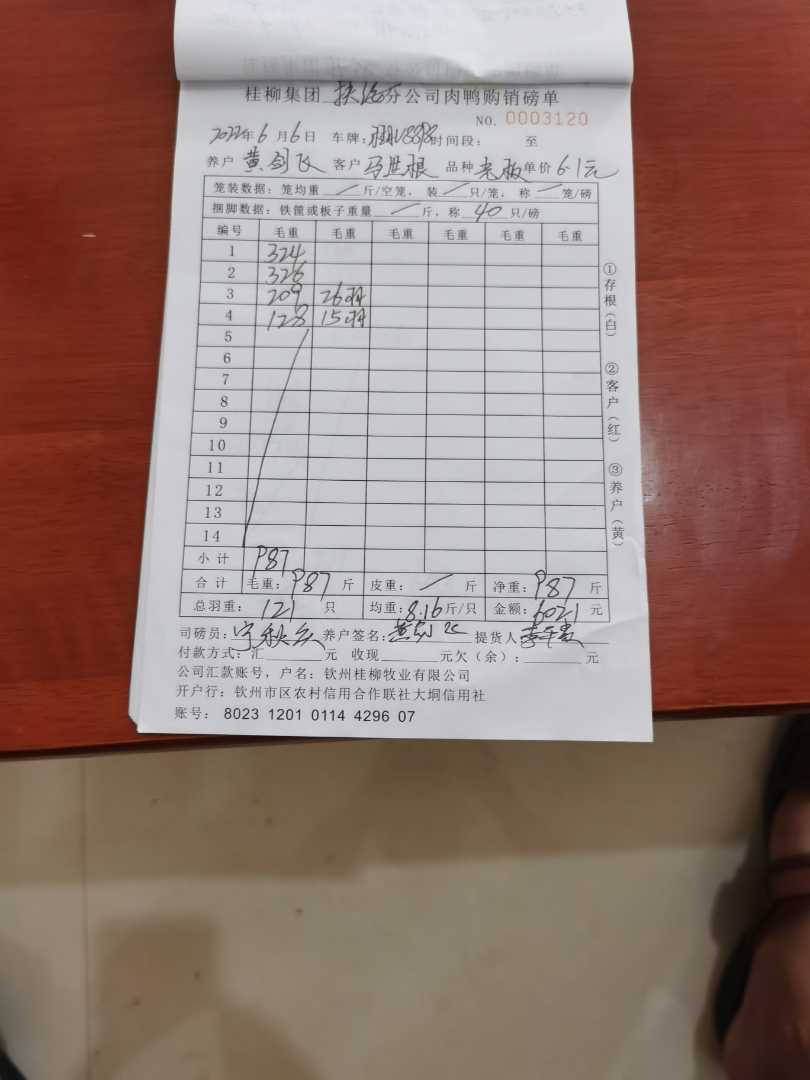 桂柳集团 扶绥分公司肉鸭购销磅单
NO. 0003120
2022年6月6日 车牌: 时间段: 至
养户 黄剑飞 客户 马世根 品种 老板 单价 6.1元
笼装数据:笼均重 / 斤/空笼,装 / 只/笼,称 / 笼/磅
捆脚数据:铁筐或板子重量 / 斤,称 40 只/磅
编号 毛重 毛重 毛重 毛重 毛重 毛重
1 324
2 326
3 209 26羽
4 128 15羽
5
6
7
8
9
10
11
12
13
14
小计 987
合计 毛重: 987 斤 皮重: / 斤 净重: 987 斤
总羽重: 121 只 均重: 8.16斤/只 金额: 6021 元
司磅员: 养户签名: 提货人
付款方式:汇 元 收现 元欠(余): 元
公司汇款账号,户名:钦州桂柳牧业有限公司
开户行:钦州市区农村信用合作联社大垌信用社
账号: 8023 1201 0114 4296 07
①存根(白)
②客户(红)
③养户(黄)